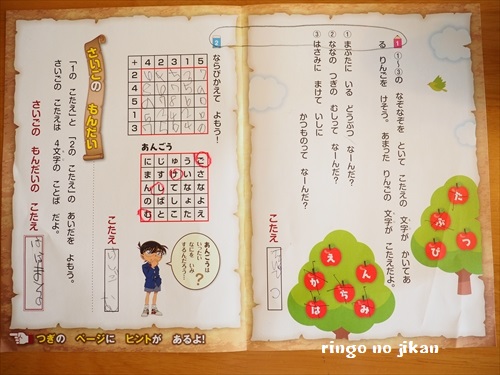 1
①〜③の なぞなぞを といて こたえの 文字が かいてあ
る りんごを けそう。あまった りんごの 文字が こたえだよ。
①まぶたに いる どうぶつ なーんだ?
②ななの つぎの むしって なーんだ?
③はさみに まけて いしに
かつものって なーんだ?
こたえ
た
ぶ
つ
び
え
ん
か
ち
み
は
2
ならびかえて よもう!
+ 4 2 1 5
2
4
5
1
3
あんごう
に じ ゅ う ご
ま す け い さ
ん し て な な
の ば し ょ よ
む と こ た え
こたえ
あんごうは
いったい
なにを いみ
するんだろう…
?
さいごの もんだい
「1の こたえ」と 「2の こたえ」の あいだを よもう。
さいごの こたえは 4文字の ことば だよ。
さいごの もんだいの こたえ
つぎの ページに ヒントが あるよ!
ringo no jikan